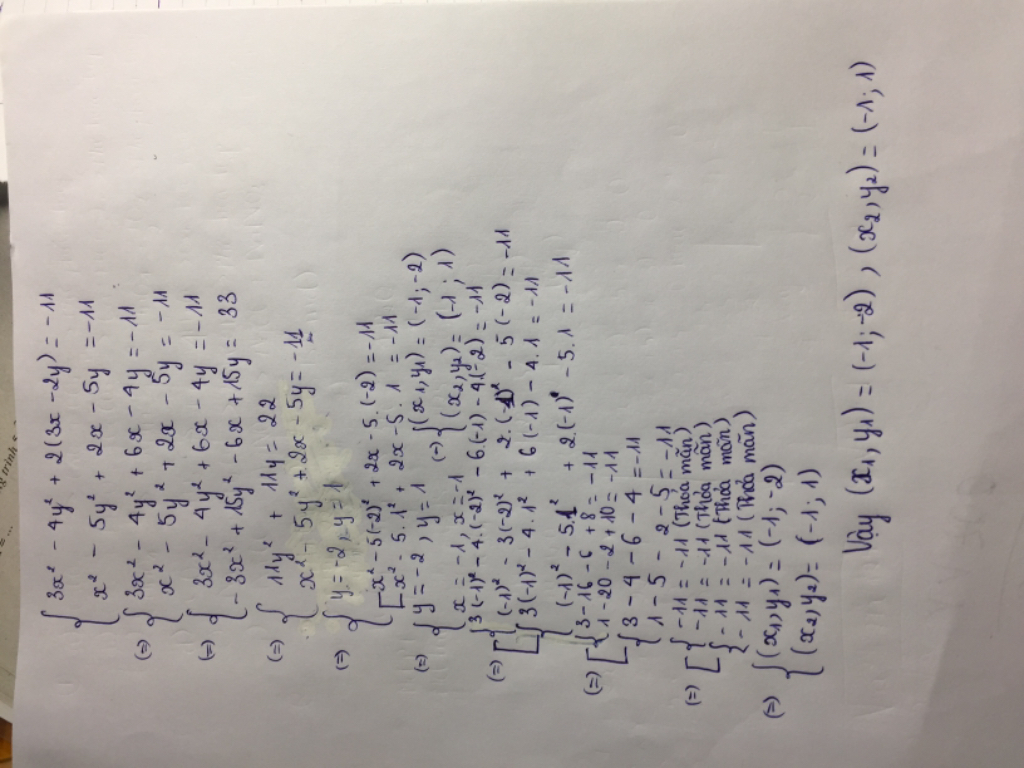 3x² - 4y² + 2(3x - 2y) = -11
x² - 5y² + 2x - 5y = -11
(=) 3x² - 4y² + 6x - 4y = -11
x² - 5y² + 2x - 5y = -11
(=) 3x² - 4y² + 6x - 4y = -11
-3x² + 15y² - 6x + 15y = 33
(=) 11y² + 11y = 22
x² - 5y² + 2x - 5y = -11
(=) y = -2, y = 1
x² - 5(-2)² + 2x - 5.(-2) = -11
x² - 5.1² + 2x - 5.1 = -11
(=) y = -2, y = 1
x = -1, x = -1
(=) (x1, y1) = (-1; -2)
(x2, y2) = (-1; 1)
3(-1)² - 4.(-2)² - 6.(-1) - 4(-2) = -11
(=) (-1)² - 3(-2)² + 2.(-1) - 5(-2) = -11
3(-1)² - 4.1² + 6(-1) - 4.1 = -11
(-1)² - 5.1² + 2(-1) - 5.1 = -11
(=) 3 - 16 - 6 + 8 = -11
1 - 20 - 2 + 10 = -11
3 - 4 - 6 - 4 = -11
1 - 5 - 2 - 5 = -11
(=) -11 = -11 (Thỏa mãn)
-11 = -11 (Thỏa mãn)
-11 = -11 (Thỏa mãn)
-11 = -11 (Thỏa mãn)
(=) (x1, y1) = (-1; -2)
(x2, y2) = (-1; 1)
Vậy (x1, y1) = (-1; -2), (x2, y2) = (-1; 1)